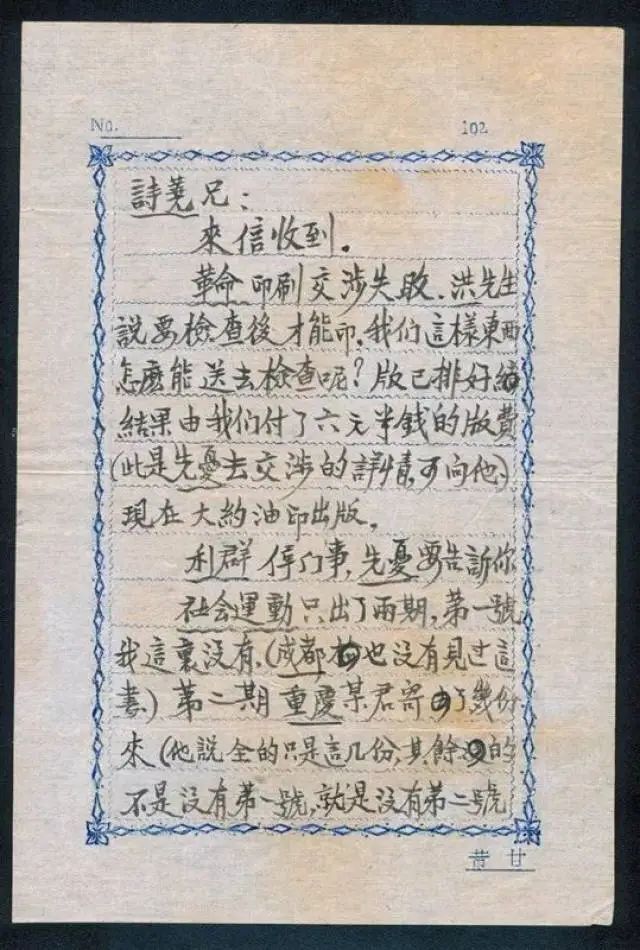 No. 102
詩蕘兄：
來信收到.
革命印刷交涉失敗.洪先生
說要檢查後才能印,我们這樣東西
怎麽能送去檢查呢？版已排好
結果由我们付了六元半钱的版費
(此是先憂去交涉的詳情,可向他.)
現在大約油印出版,
利群停门事,先憂要告訴你
社会運動只出了兩期,第一號
我這裏没有,(成都 也没有見过這
書.)第二期重慶某君寄 了幾份
來(他說全的只是這几份,其餘 的
不是没有第一號,就是没有第二號
芾甘